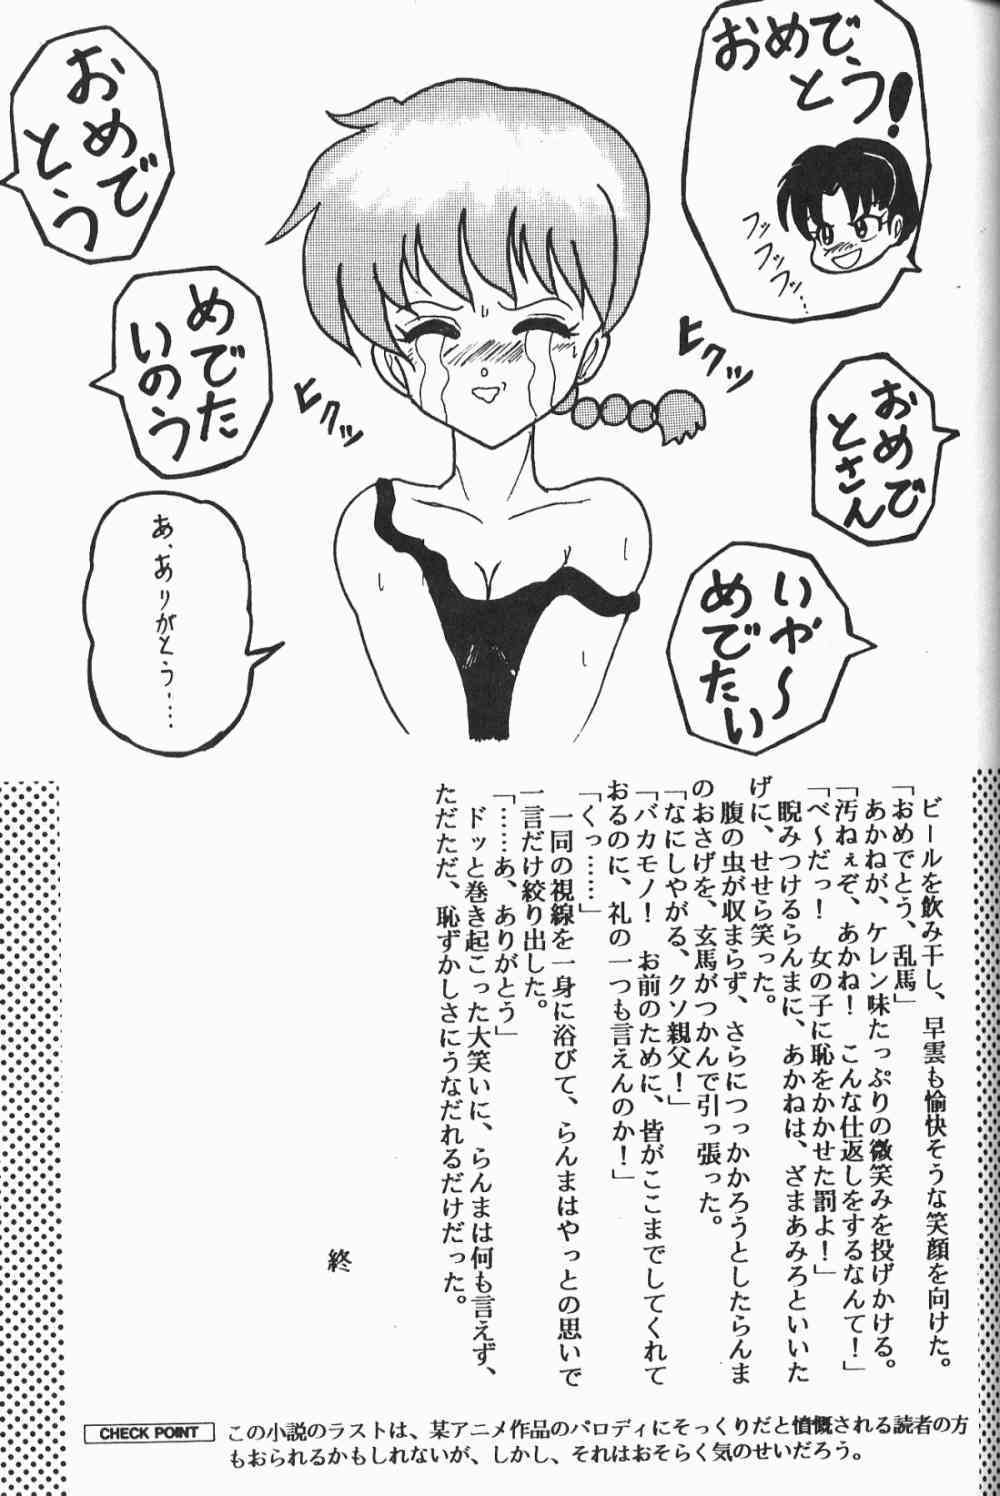 おめで
とう!
フッ
フッ
フッ…
おめで
とさん
いや〜
めでたい
おめで
とう
めでた
いのう
ヒクッ
ヒクッ
あ、ありがとう……
ビールを飲み干し、早雲も愉快そうな笑顔を向けた。
「おめでとう、乱馬」
あかねが、ケレン味たっぷりの微笑みを投げかける。
「汚ねぇぞ、あかね！　こんな仕返しをするなんて！」
「べ〜だっ！　女の子に恥をかかせた罰よ！」
睨みつけるらんまに、あかねは、ざまあみろといいた
げに、せせら笑った。
腹の虫が収まらず、さらにつっかかろうとしたらんま
のおさげを、玄馬がつかんで引っ張った。
「なにしやがる、クソ親父！」
「バカモノ！　お前のために、皆がここまでしてくれて
おるのに、礼の一つも言えんのか！」
「くっ……」
一同の視線を一身に浴びて、らんまはやっとの思いで
一言だけ絞り出した。
「……あ、ありがとう」
ドッと巻き起こった大笑いに、らんまは何も言えず、
ただただ、恥ずかしさにうなだれるだけだった。
終
CHECK POINT
この小説のラストは、某アニメ作品のパロディにそっくりだと憤慨される読者の方
もおられるかもしれないが、しかし、それはおそらく気のせいだろう。